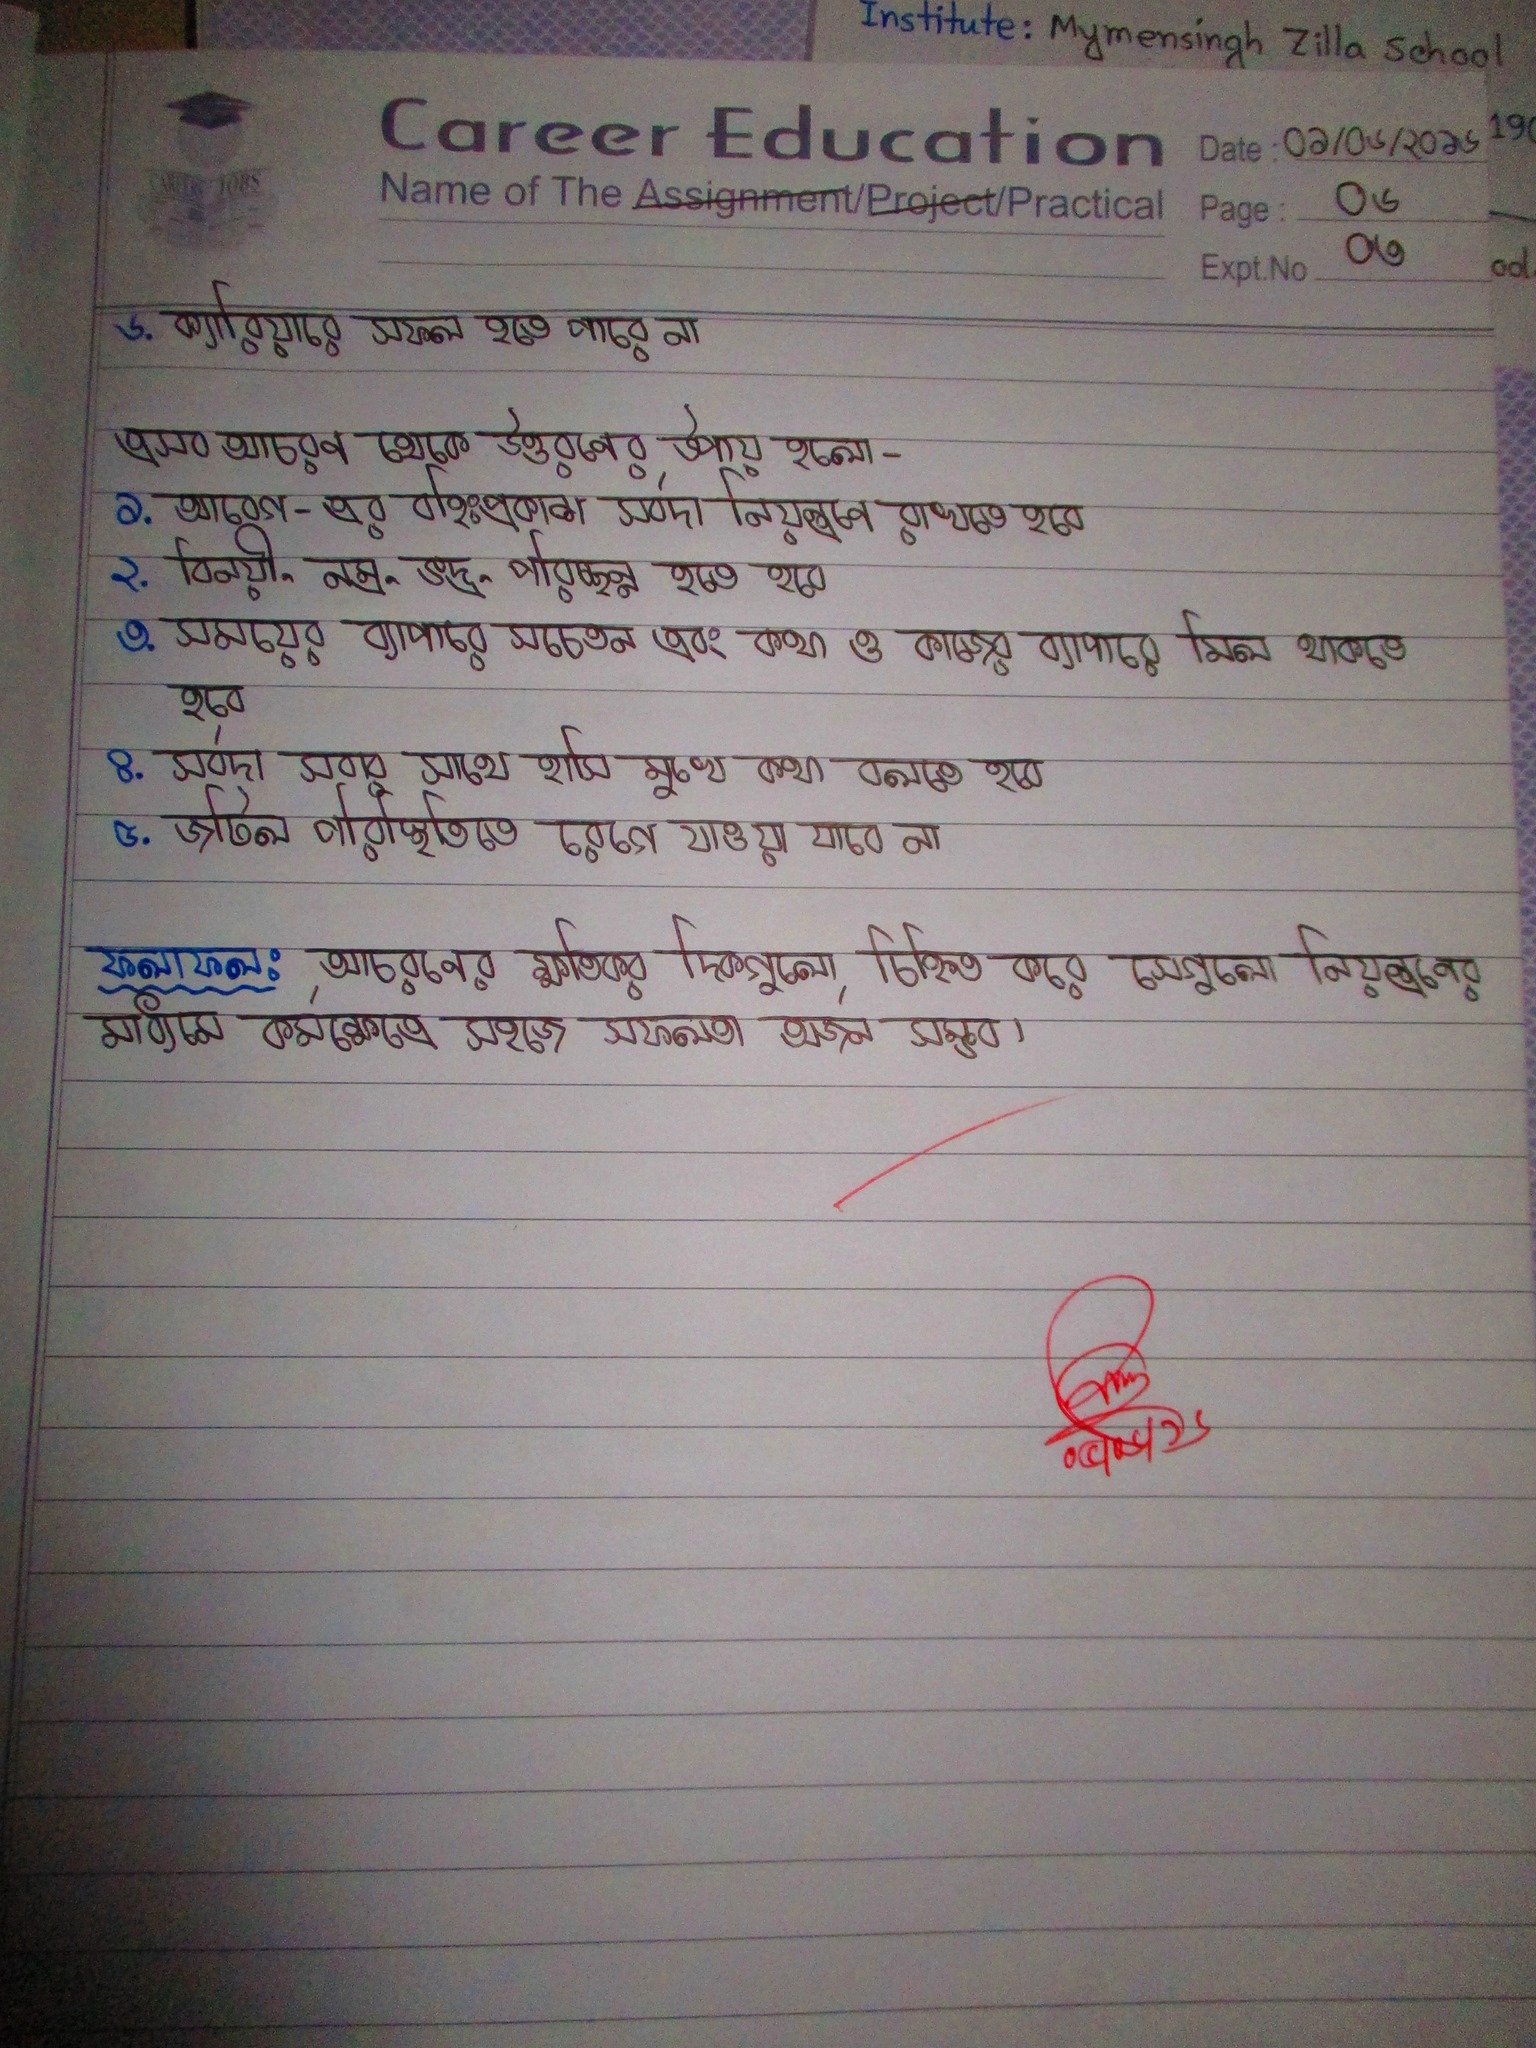 Institute: Mymensingh Zilla School
Career Education
Name of The Assignment/Project/Practical
Date :
Page : ০৬
Expt.No ০৩
৬. ক্যারিয়ারে সফল হতে পারে না
এসব আচরণ থেকে উত্তরণের উপায় হলো-
১. আবেগ-এর বহিঃপ্রকাশ সর্বদা নিয়ন্ত্রণে রাখতে হবে
২. বিনয়ী, নম্র, ভদ্র, পরিচ্ছন্ন হতে হবে
৩. সময়ের ব্যাপারে সচেতন এবং কথা ও কাজের ব্যাপারে মিল থাকতে
হবে
৪. সর্বদা সবার সাথে হাসি মুখে কথা বলতে হবে
৫. জটিল পরিস্থিতিতে রেগে যাওয়া যাবে না
ফলাফল: আচরণের ক্ষতিকর দিকগুলো চিহ্নিত করে সেগুলো নিয়ন্ত্রণের
মাধ্যমে কর্মক্ষেত্রে সহজে সফলতা অর্জন সম্ভব।